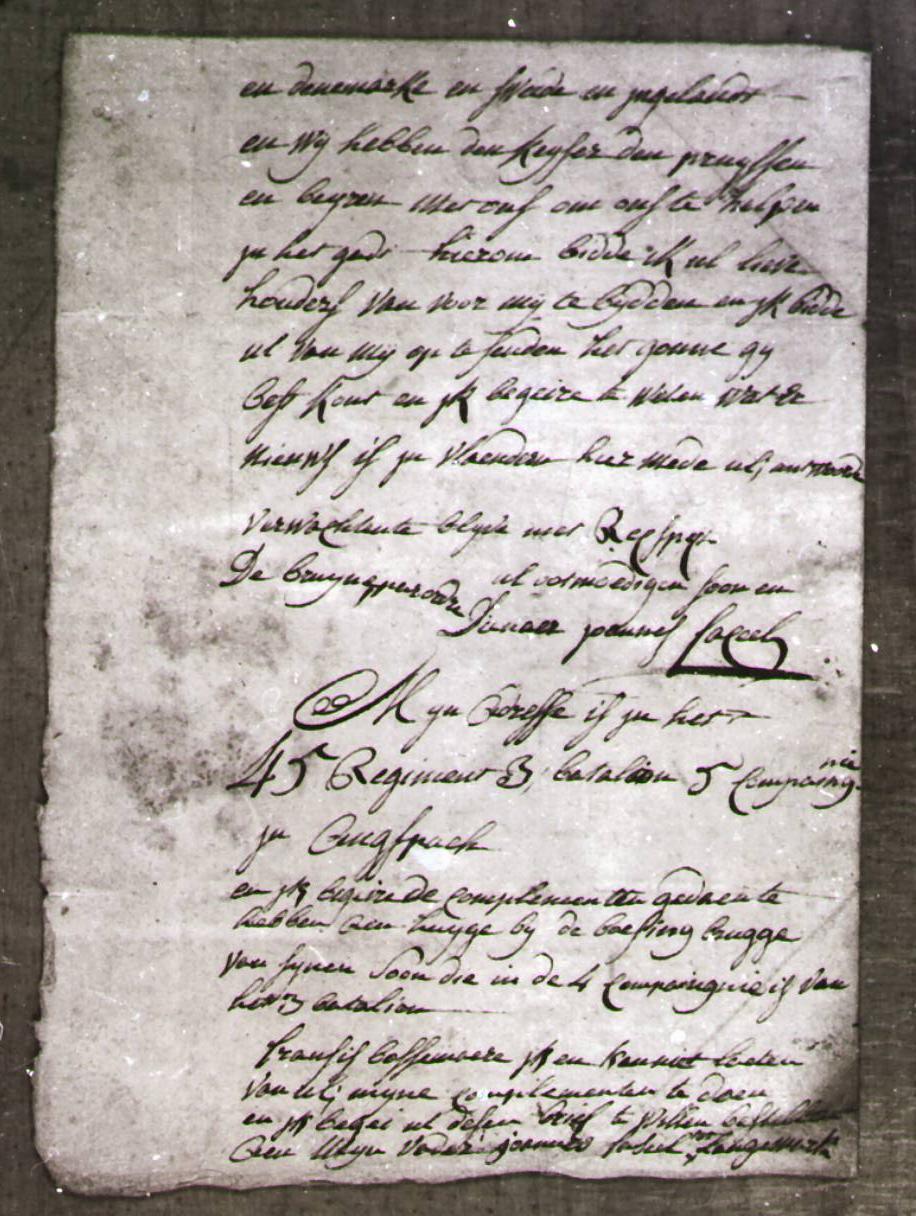 en denemarke en sweede en jngelandt
en wij hebben den keyser den pruyssen
en beyren met ons om ons te helpen
jn het gods hierom bidde ik ul lieve
houders van voor mij te bidden en jk bidde
ul van mij op te senden het gonne gij
best kont en jk begeire te weten wat er
nieuws is jn vlaendren hier mede ul; antwoorde
verwachtente blyve met Respeqt
ul ootmoedigen soon en
De bruyne
Dienaer joannes
Myn Adresse is jn het
45 Regiment 3 batalion 5 Compaingnie
jn
en jk begeire de complementen gedaen te
hebben aen huyge by de boesing brugge
van synen soon die in de 4 compaingnie is van
het 3 batalion
fransis jk en kan niet laeten
van ul; myne complementen te doen
en jk begei ul desen brief te willen bestellen
aen myn vader joannes langemark